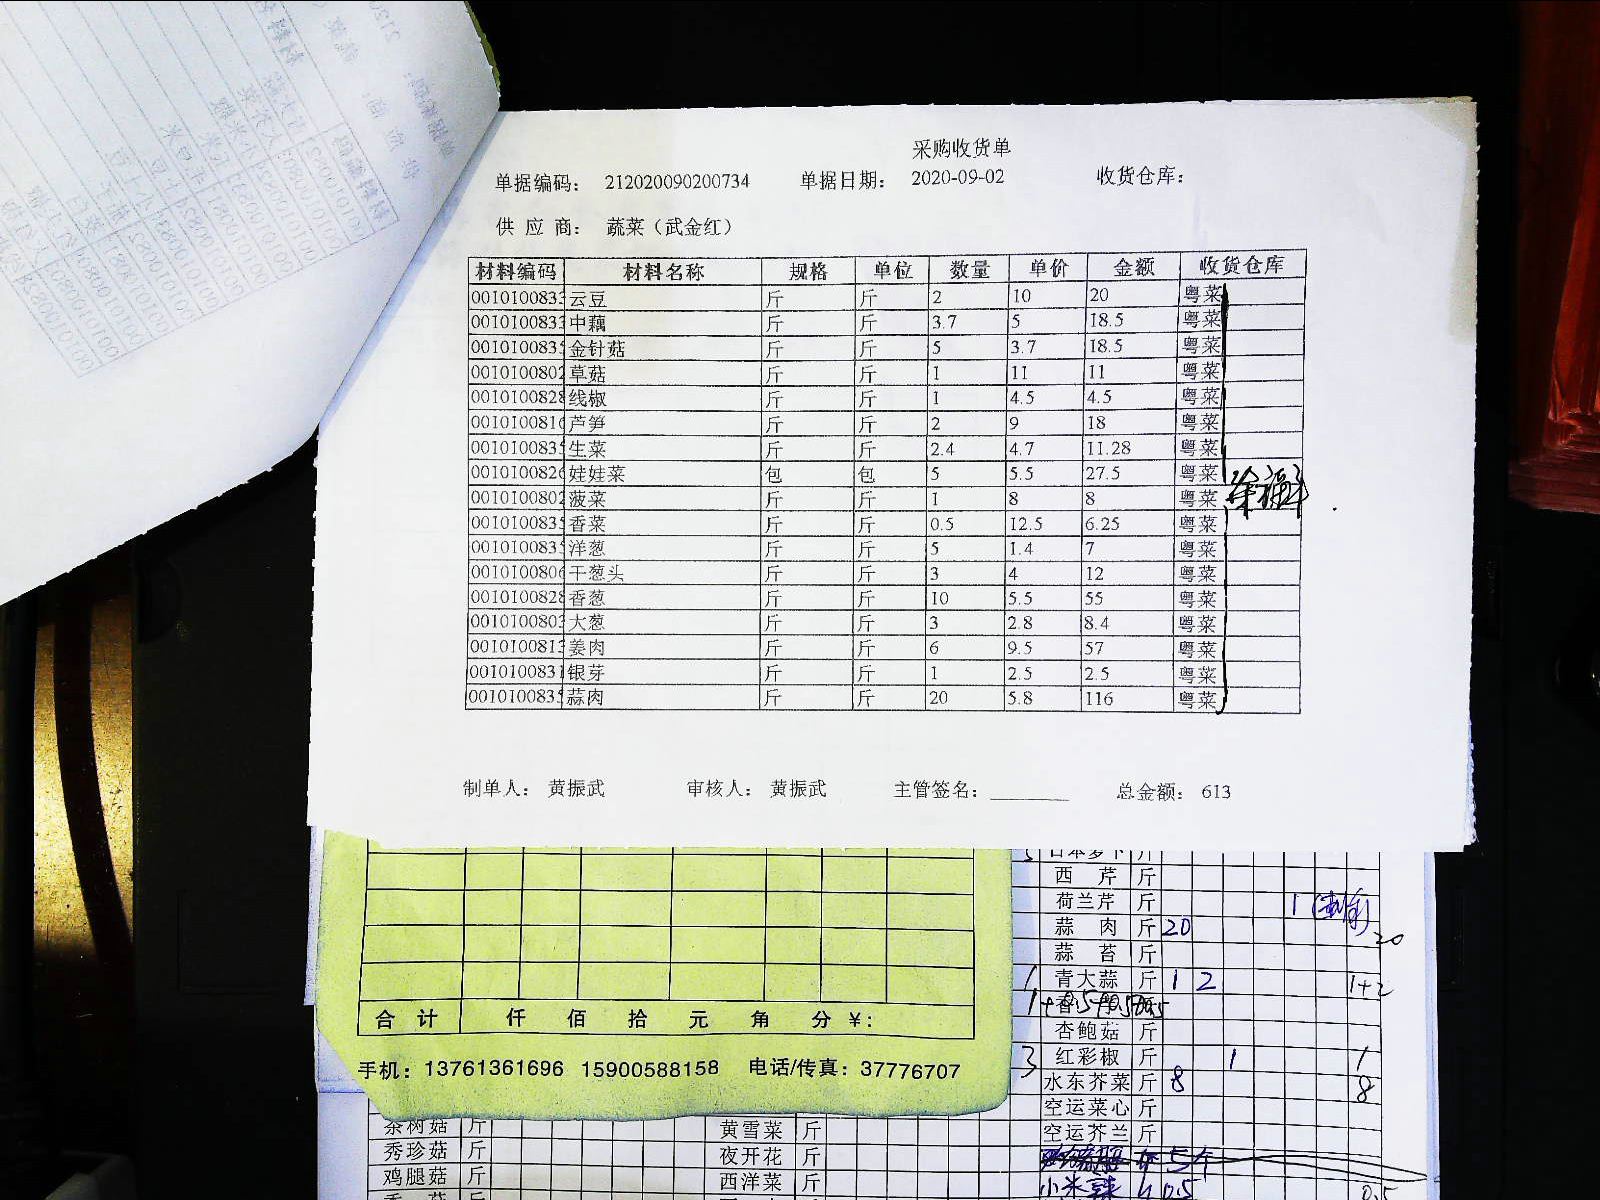 采购收货单
单据编码： 212020090200734 单据日期： 2020-09-02 收货仓库：
供 应 商： 蔬菜（武金红）
材料编码 材料名称 规格 单位 数量 单价 金额 收货仓库
0010100833 云豆 斤 斤 2 10 20 粤菜
0010100833 中藕 斤 斤 3.7 5 18.5 粤菜
0010100835 金针菇 斤 斤 5 3.7 18.5 粤菜
0010100802 草菇 斤 斤 1 11 11 粤菜
0010100828 线椒 斤 斤 1 4.5 4.5 粤菜
0010100816 芦笋 斤 斤 2 9 18 粤菜
0010100835 生菜 斤 斤 2.4 4.7 11.28 粤菜
0010100826 娃娃菜 包 包 5 5.5 27.5 粤菜
0010100802 菠菜 斤 斤 1 8 8 粤菜
0010100835 香菜 斤 斤 0.5 12.5 6.25 粤菜
0010100835 洋葱 斤 斤 5 1.4 7 粤菜
0010100806 干葱头 斤 斤 3 4 12 粤菜
0010100828 香葱 斤 斤 10 5.5 55 粤菜
0010100803 大葱 斤 斤 3 2.8 8.4 粤菜
0010100813 姜肉 斤 斤 6 9.5 57 粤菜
0010100831 银芽 斤 斤 1 2.5 2.5 粤菜
0010100835 蒜肉 斤 斤 20 5.8 116 粤菜
制单人： 黄振武 审核人： 黄振武 主管签名： 总金额： 613
日本萝卜 斤
西 芹 斤
荷兰芹 斤 1
蒜 肉 斤 20 20
蒜 苔 斤
1 青大蒜 斤 1 2 1+2
合 计 仟 佰 拾 元 角 分 ¥：
杏鲍菇 斤
3 红彩椒 斤 1 1
手机：13761361696 15900588158 电话/传真：37776707
水东芥菜 斤 8 8
空运菜心 斤
茶树菇 斤 黄雪菜 斤 空运芥兰 斤
秀珍菇 斤 夜开花 斤
鸡腿菇 斤 西洋菜 斤 小米辣 0.5 0.5